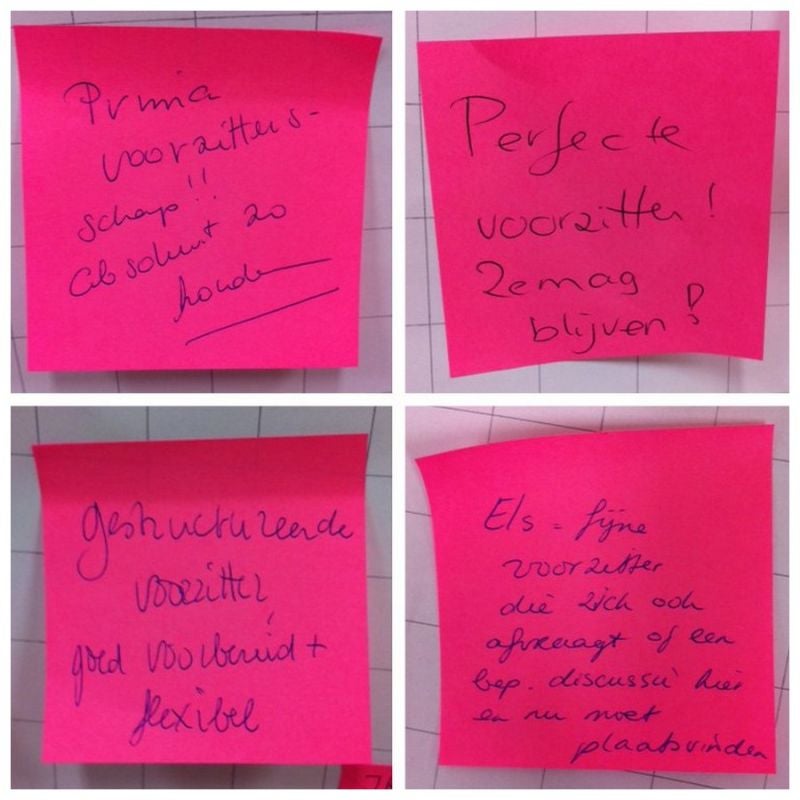 Prima
voorzitters-
schap!!
absoluut zo
houden
Perfecte
voorzitter!
Ze mag
blijven!
gestructureerde
voorzitter,
goed voorbereid +
flexibel
Els = fijne
voorzitter
die zich ook
afvraagt of een
bep. discussie hier
en nu moet
plaatsvinden